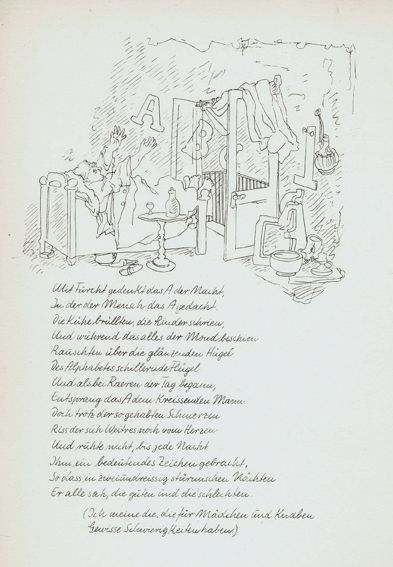 A
Mit Furcht gedenkt das A der Nacht,
In der der Mensch das A gedacht.
Die Kühe brüllten, die Rinder schrien,
Und während das alles der Mond beschien
Rauschten über die glänzenden Hügel
Des Alphabetes schillernde Flügel
Und als bei Raeren der Tag begann,
Entsprang das A dem Kreissenden Mann.
Doch trotz der so gehabten Schmerzen
Riss der sich Weitres noch vom Herzen
Und ruhte nicht, bis jede Nacht
Ihm ein bedeutendes Zeichen gebracht,
So dass in zweiunddreissig stürmischen Nächten
Er alle sah, die guten und die schlechten.
(Ich meine die, die für Mädchen und Knaben
Gewisse Schwierigkeiten haben)